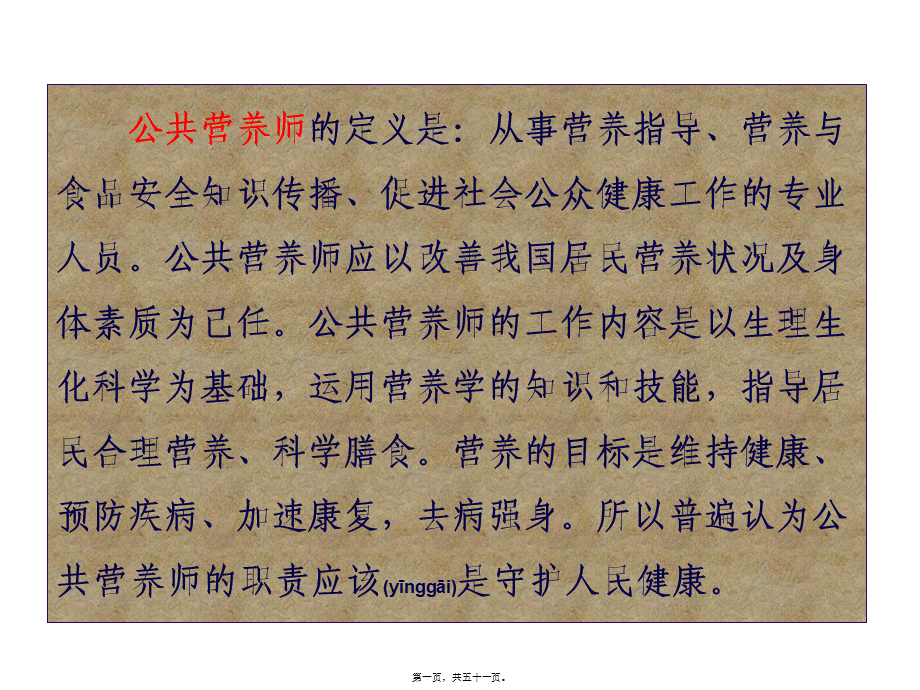 公共营养师的定义是：从事营养指导、营养与
食品安全知识传播、促进社会公众健康工作的专业
人员。公共营养师应以改善我国居民营养状况及身
体素质为己任。公共营养师的工作内容是以生理生
化科学为基础，运用营养学的知识和技能，指导居
民合理营养、科学膳食。营养的目标是维持健康、
预防疾病、加速康复，去病强身。所以普遍认为公
共营养师的职责应该(yīnggāi)是守护人民健康。
第一页，共五十一页。